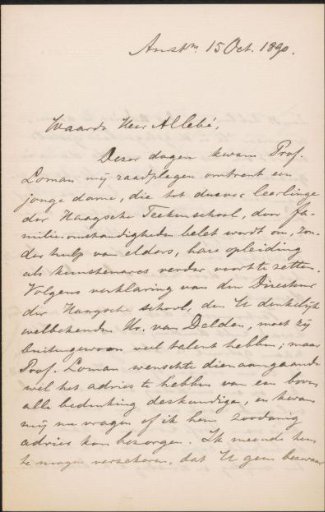 Amstm 15 Oct. 1890.
Waarde Heer Allebé,
Dezer dagen kwam Prof.
Loman mij raadplegen omtrent een
jonge dame, die tot dusver leerlinge
der Haagsche Teekenschool, door fa-
milie-omstandigheden belet wordt om, zon-
der hulp van elders, hare opleiding
als kunstenares verder voort te zetten.
Volgens verklaring van den Directeur
der Haagsche school, den U denkelijk
welbekenden Hr. van Delden, moet zij
buitengewoon veel talent hebben; maar
Prof. Loman wenschte dienaangaande
wel het advies te hebben van een boven
alle bedenking deskundige, en kwam
mij nu vragen of ik hem zoodanig
advies kon bezorgen. Ik meende hem
te mogen verzekeren, dat U geen bezwaar